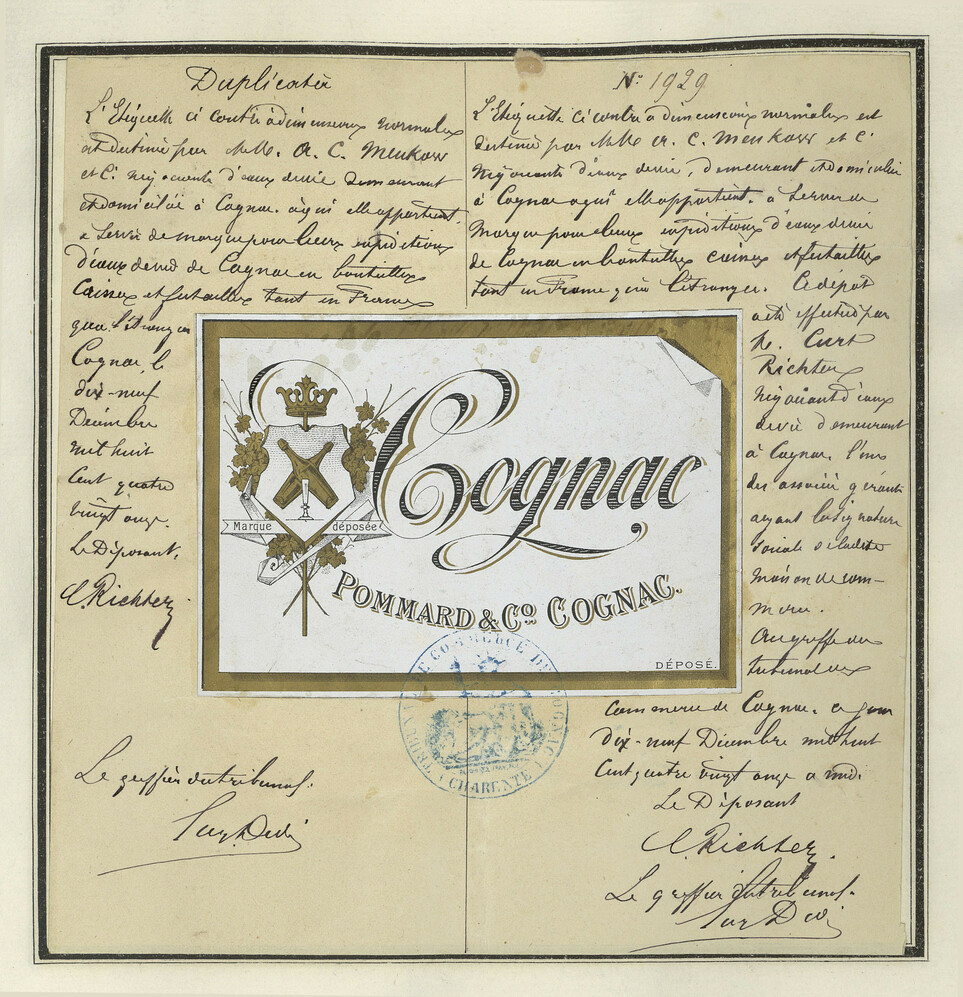 Duplicata
L'Etiquette ci contre à dimensions normales
est destinée par M.M. A. C. Meukow
et Cⁱᵉ négociants d'eaux de vie demeurant
et domiciliés à Cognac. à qui elle appartient.
a servir de marque pour leurs expéditions
d'eaux de vie de Cognac en bouteilles
Caisses et futailles tant en France
que l'étranger
Cognac, le
dix-neuf
Décembre
mil huit
Cent quatre
vingt onze.
Le Déposant,
C. Richter
Le greffier du tribunal.
N° 1929
L'Etiquette ci contre à dimensions normales est
destinée par M.M. A. C. Meukow et Cⁱᵉ
Négociants d'eaux de vie, demeurant et domiciliés
à Cognac a qui elle appartient. a servir de
Marque pour leurs expéditions d'eaux de vie
de Cognac en bouteilles caisses et futailles
tant en France qu'à l'étranger. Ce dépot
a été effectué par
M. Curt
Richter
Négociant d'eaux
de vie demeurant
à Cognac, l'un
des associés gérants
ayant la signature
sociale de ladite
maison de com-
merce.
Au greffe du
tribunal de
Commerce de Cognac. ce jour
dix-neuf Décembre mil huit
Cent quatre vingt onze a midi.
Le Déposant
C. Richter.
Le greffier du tribunal.
Marque déposée
Cognac
POMMARD & Cº COGNAC.
DÉPOSÉ.
TRIBUNAL DE COMMERCE DE COGNAC
CHARENTE